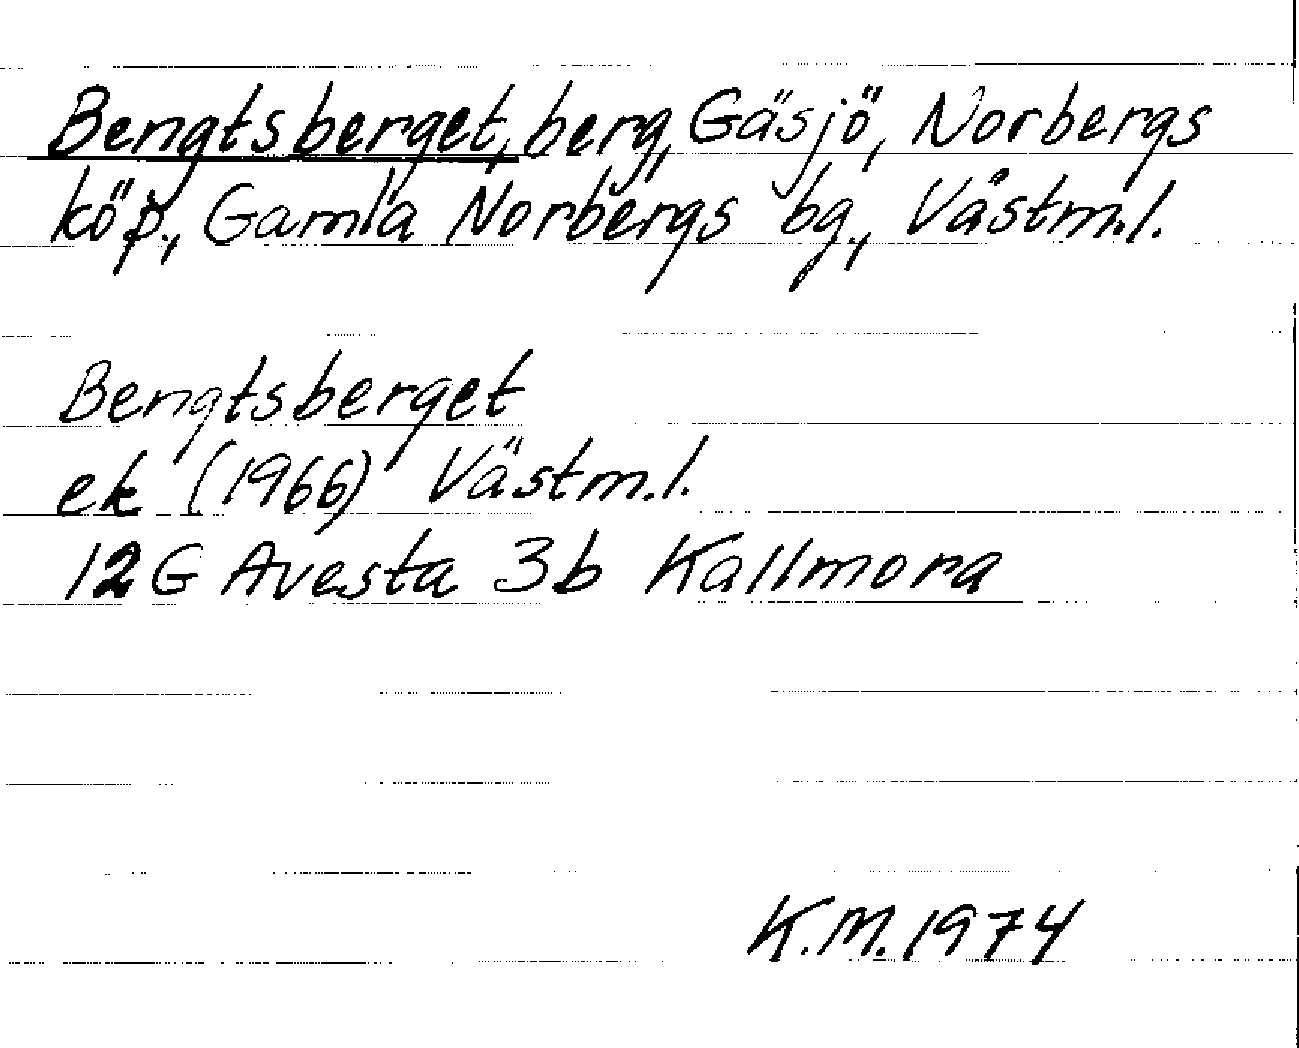 Bengtsberget, berg, Gäsjö, Norbergs
köp., Gamla Norbergs bg., Västm.l.
Bengtsberget
ek (1966) Västm.l.
12G Avesta 3b Kallmora
K.M. 1974